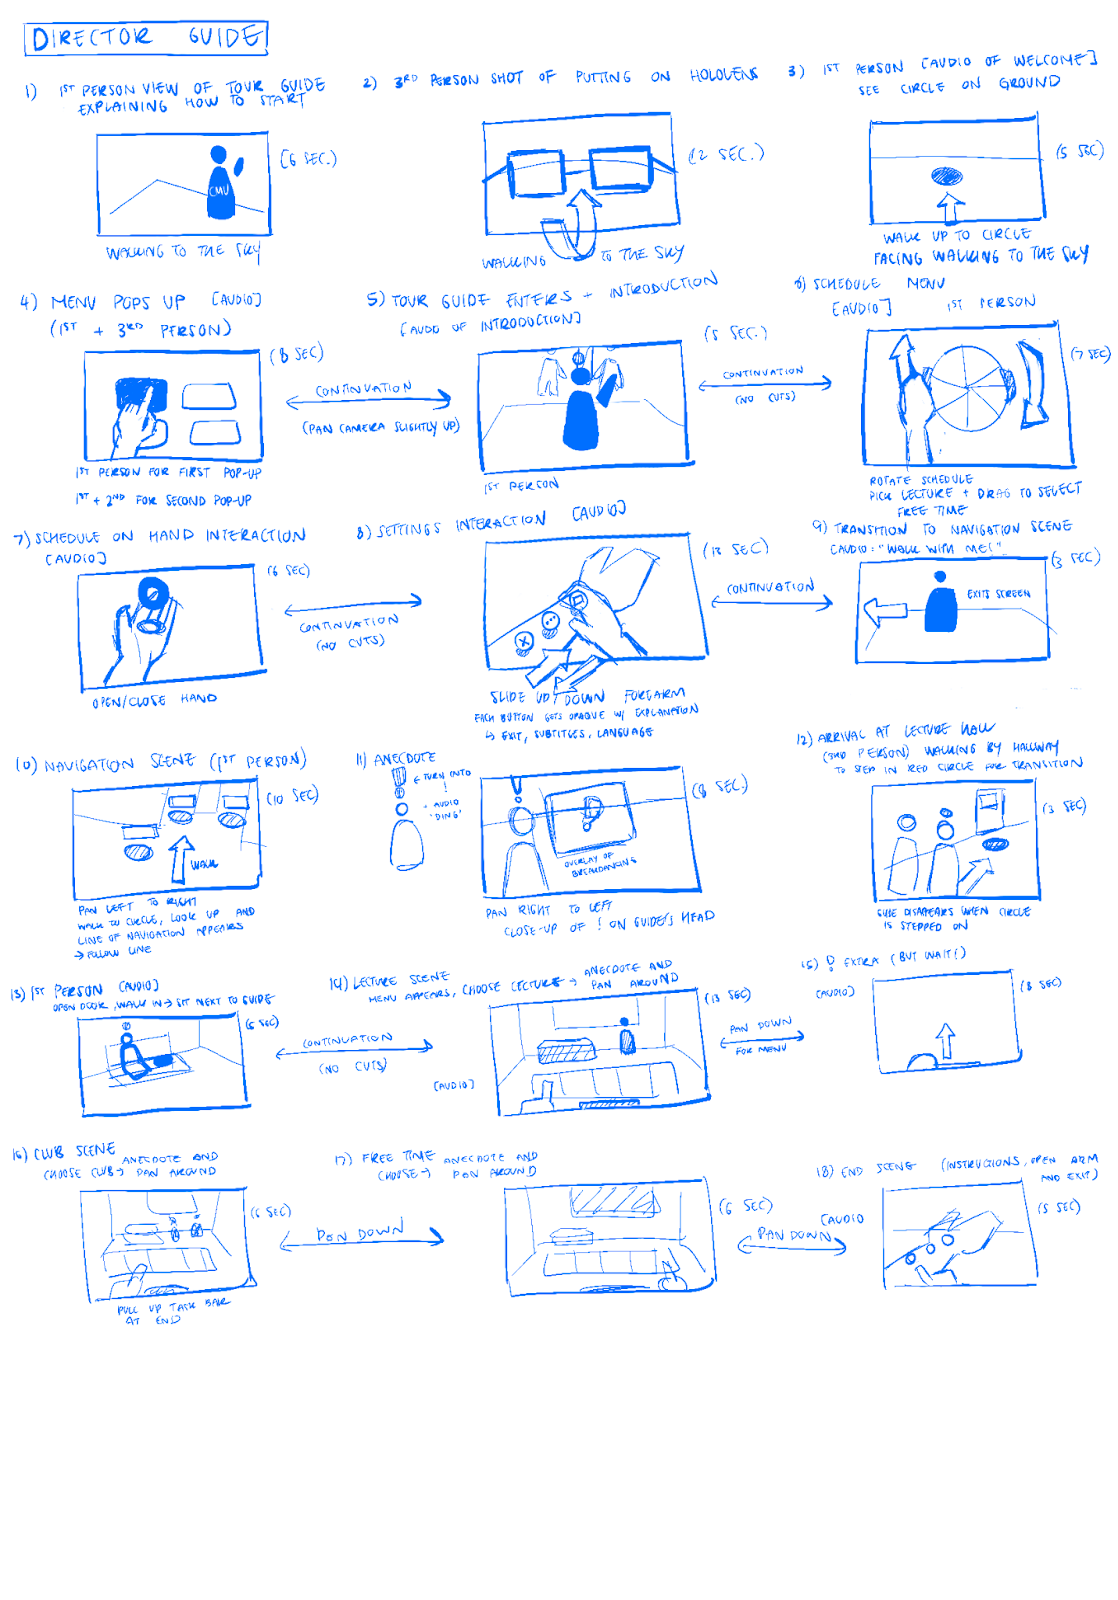 DIRECTOR GUIDE
1) 1ST PERSON VIEW OF TOUR GUIDE
EXPLAINING HOW TO START
(6 SEC.)
CMU
WALKING TO THE SKY
2) 3RD PERSON SHOT OF PUTTING ON HOLOLENS
(2 SEC.)
WALKING TO THE SKY
3) 1ST PERSON [AUDIO OF WELCOME]
SEE CIRCLE ON GROUND
(5 SEC)
WALK UP TO CIRCLE
FACING WALKING TO THE SKY
4) MENU POPS UP [AUDIO]
(1ST + 3RD PERSON)
(8 SEC)
1ST PERSON FOR FIRST POP-UP
1ST + 2ND FOR SECOND POP-UP
CONTINUATION
(PAN CAMERA SLIGHTLY UP)
5) TOUR GUIDE ENTERS + INTRODUCTION
[AUDO OF INTRODUCTION]
(5 SEC.)
1ST PERSON
CONTINUATION
(NO CUTS)
6) SCHEDULE MENU
[AUDIO] 1ST PERSON
(7 SEC)
ROTATE SCHEDULE
PICK LECTURE + DRAG TO SELECT
FREE TIME
7) SCHEDULE ON HAND INTERACTION
[AUDIO]
(6 SEC)
OPEN/CLOSE HAND
CONTINUATION
(NO CUTS)
8) SETTINGS INTERACTION [AUDIO]
(12 SEC)
SLIDE UP/DOWN FOREARM
EACH BUTTON GETS OPAQUE W/ EXPLANATION
↳ EXIT, SUBTITLES, LANGUAGE
CONTINUATION
9) TRANSITION TO NAVIGATION SCENE
[AUDIO: "WALK WITH ME!"
(3 SEC)
EXITS SCREEN
10) NAVIGATION SCENE (1ST PERSON)
(10 SEC)
WALK
PAN LEFT TO RIGHT
WALK TO CIRCLE, LOOK UP AND
LINE OF NAVIGATION APPEARS
→ FOLLOW LINE
11) ANECDOTE
← TURN INTO
!
+ AUDIO
"DING"
(8 SEC.)
OVERLAY OF
BREAKDANCING
PAN RIGHT TO LEFT
CLOSE-UP OF ! ON GUIDE'S HEAD
12) ARRIVAL AT LECTURE HALL
(3RD PERSON) WALKING BY HALLWAY
TO STEP IN RED CIRCLE FOR TRANSITION
(3 SEC)
GUIE DISAPPEARS WHEN CIRCLE
IS STEPPED ON
13) 1ST PERSON [AUDIO]
OPEN DOOR, WALK IN → SIT NEXT TO GUIDE
(5 SEC)
CONTINUATION
(NO CUTS)
14) LECTURE SCENE ANECDOTE AND
MENU APPEARS, CHOOSE LECTURE → PAN AROUND
(13 SEC)
[AUDIO]
PAN DOWN
FOR MENU
15) ! EXTRA (BUT WAIT!)
[AUDIO]
(8 SEC)
16) CLUB SCENE ANECDOTE AND
CHOOSE CLUB → PAN AROUND
(6 SEC)
PULL UP TASK BAR
AT END
PAN DOWN
17) FREE TIME ANECDOTE AND
CHOOSE → PAN AROUND
(6 SEC)
PAN DOWN
18) END SCENE (INSTRUCTIONS, OPEN ARM
AND EXIT)
[AUDIO
(5 SEC)